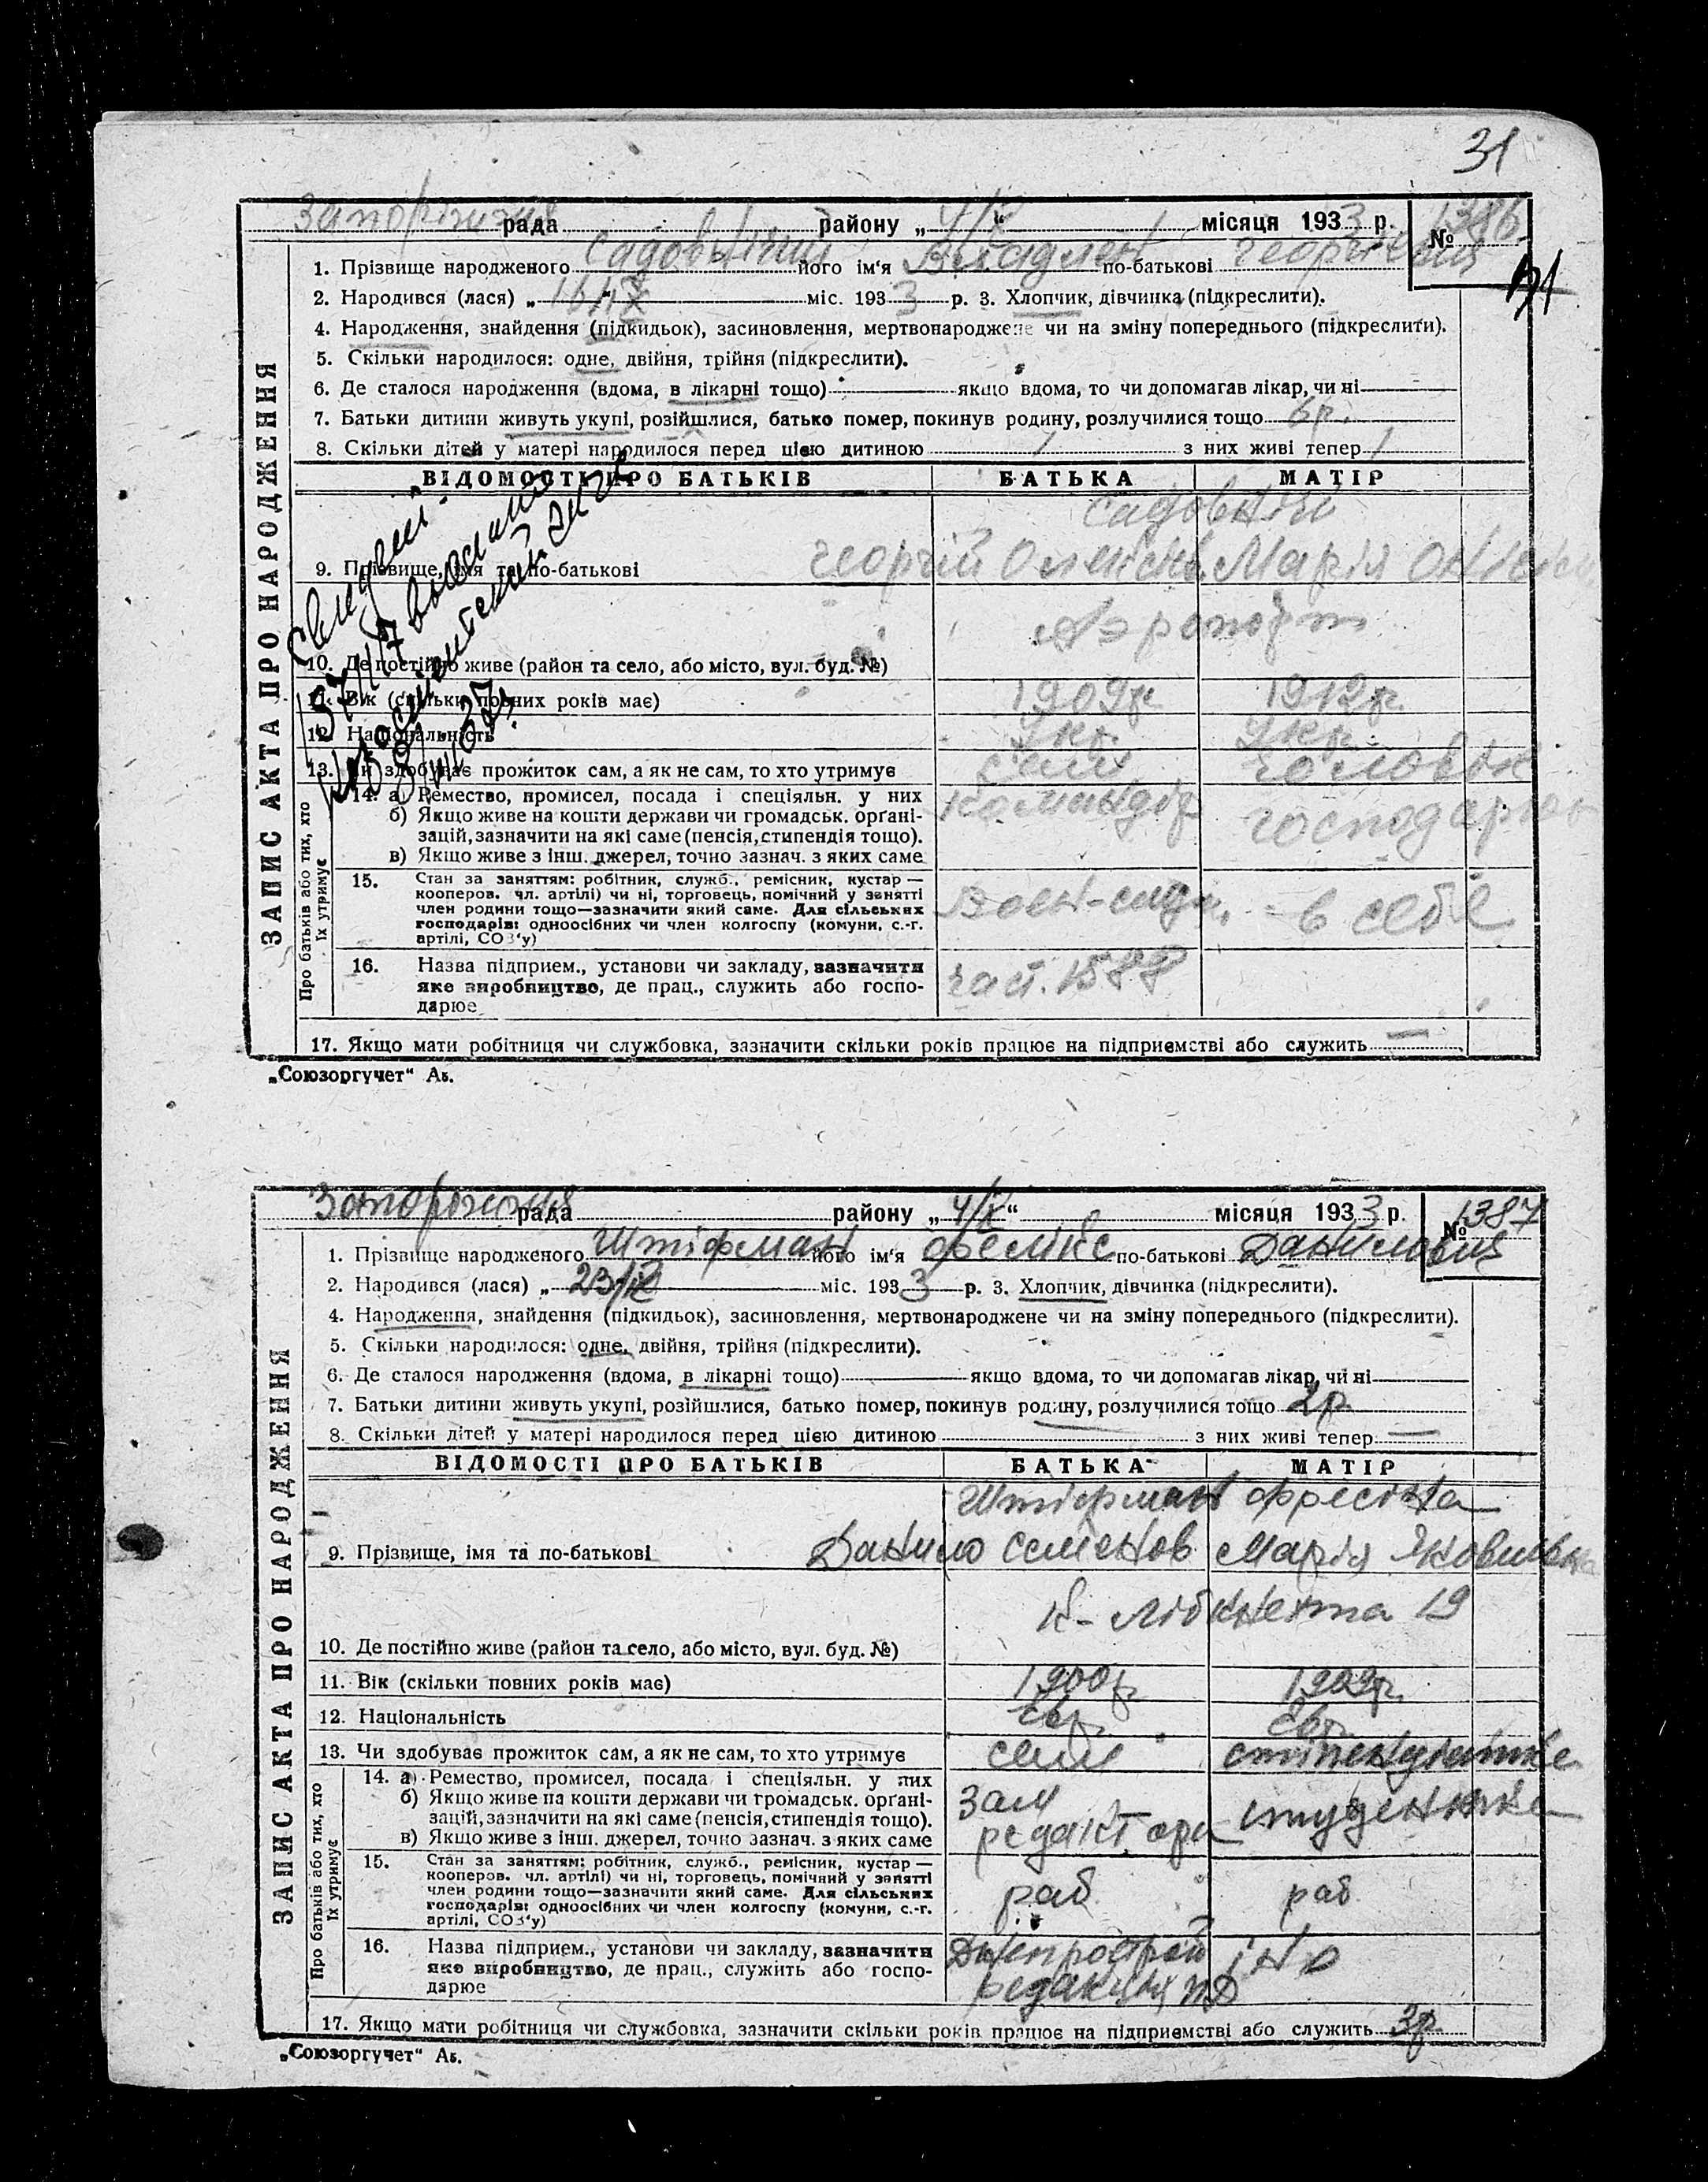 31
Запоріжжя рада району „ 4/X “ місяця 1933 р. № 1386
1. Прізвище народженого Садовничий його ім'я Владлен по-батькові Георгієвич
2. Народився (лася) „ 16/IX міс. 1933 р. 3. Хлопчик, дівчинка (підкреслити).
4. Народження, знайдення (підкидьок), засиновлення, мертвонароджене чи на зміну попереднього (підкреслити).
5. Скільки народилося: одне, двійня, трійня (підкреслити).
6. Де сталося народження (вдома, в лікарні тощо) якщо вдома, то чи допомагав лікар, чи ні
7. Батьки дитини живуть укупі, розійшлися, батько помер, покинув родину, розлучилися тощо 6р.
8. Скільки дітей у матері народилося перед цією дитиною 1 з них живі тепер 1
ЗАПИС АКТА ПРО НАРОДЖЕННЯ
ВІДОМОСТІ ПРО БАТЬКІВ БАТЬКА МАТІР
9. Прізвище, імя та по-батькові Георгій Марія
10. Де постійно живе (район та село, або місто, вул. буд. №) Аэропорт
11. Вік (скільки повних років має) 1909р. 1912р.
12. Національність Укр. Укр.
13. Чи здобуває прожиток сам, а як не сам, то хто утримує сам чоловік
Про батьків або тих, хто їх утримує
14. а) Ремество, промисел, посада і спеціяльн. у них командір
б) Якщо живе на кошти держави чи громадськ. орґані-
зацій, зазначити на які саме (пенсія, стипендія тощо).
в) Якщо живе з інш. джерел, точно зазнач. з яких саме
15. Стан за заняттям: робітник, служб., ремісник, кустар —
кооперов. чл. артілі) чи ні, торговець, помічний у занятті
член родини тощо—зазначити який саме. Для сільських
господарів: одноосібних чи член колгоспу (комуни, с.-г.
артілі, СОЗ'у) в себе
16. Назва підприєм., установи чи закладу, зазначити част. 1588
яке виробництво, де прац., служить або госпо-
дарює
17. Якщо мати робітниця чи службовка, зазначити скільки років працює на підприємстві або служить —
„Союзоргучет“ Аб.
Запоріжжя рада району „ 4/X “ місяця 1933 р. № 1387
1. Прізвище народженого Штіфман його ім'я Фелікс по-батькові Данилович
2. Народився (лася) „ 23/IX міс. 1933 р. 3. Хлопчик, дівчинка (підкреслити).
4. Народження, знайдення (підкидьок), засиновлення, мертвонароджене чи на зміну попереднього (підкреслити).
5. Скільки народилося: одне, двійня, трійня (підкреслити).
6. Де сталося народження (вдома, в лікарні тощо) якщо вдома, то чи допомагав лікар, чи ні
7. Батьки дитини живуть укупі, розійшлися, батько помер, покинув родину, розлучилися тощо 2р.
8. Скільки дітей у матері народилося перед цією дитиною з них живі тепер —
ЗАПИС АКТА ПРО НАРОДЖЕННЯ
ВІДОМОСТІ ПРО БАТЬКІВ БАТЬКА МАТІР
Штіфман
9. Прізвище, імя та по-батькові Данило Семенов Марія Яковлевна
10. Де постійно живе (район та село, або місто, вул. буд. №) К-Лібкнехта 19
11. Вік (скільки повних років має) 1900р. 1909р.
12. Національність Євр. Євр.
13. Чи здобуває прожиток сам, а як не сам, то хто утримує сам стіпендіатка
Про батьків або тих, хто їх утримує
14. а) Ремество, промисел, посада і спеціяльн. у них зам редактора студентка
б) Якщо живе на кошти держави чи громадськ. орґані-
зацій, зазначити на які саме (пенсія, стипендія тощо).
в) Якщо живе з інш. джерел, точно зазнач. з яких саме
15. Стан за заняттям: робітник, служб., ремісник, кустар —
кооперов. чл. артілі) чи ні, торговець, помічний у занятті
член родини тощо—зазначити який саме. Для сільських
господарів: одноосібних чи член колгоспу (комуни, с.-г.
артілі, СОЗ'у) раб раб
16. Назва підприєм., установи чи закладу, зазначити Днепрострой ІНО
яке виробництво, де прац., служить або госпо- редакция
дарює
17. Якщо мати робітниця чи службовка, зазначити скільки років працює на підприємстві або служить 3р
„Союзоргучет“ Аб.